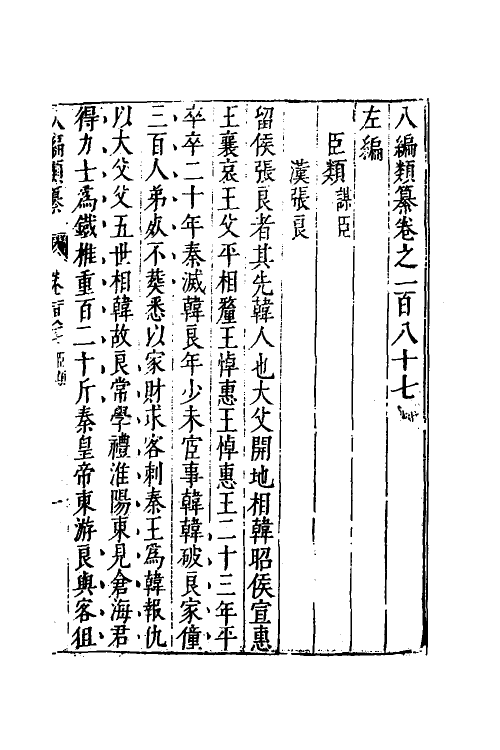 八編類纂卷之一百八十七
左編
臣類 謀臣
漢張良
留侯張良者其先韓人也大父開地相韓昭侯宣惠
王襄哀王父平相釐王悼惠王悼惠王二十三年平
卒卒二十年秦滅韓良年少未宦事韓韓破良家僮
三百人弟死不葬悉以家財求客刺秦王為韓報仇
以大父父五世相韓故良常學禮淮陽東見倉海君
得力士爲鐵椎重百二十斤秦皇帝東游良與客狙
八編類纂
臣類
一